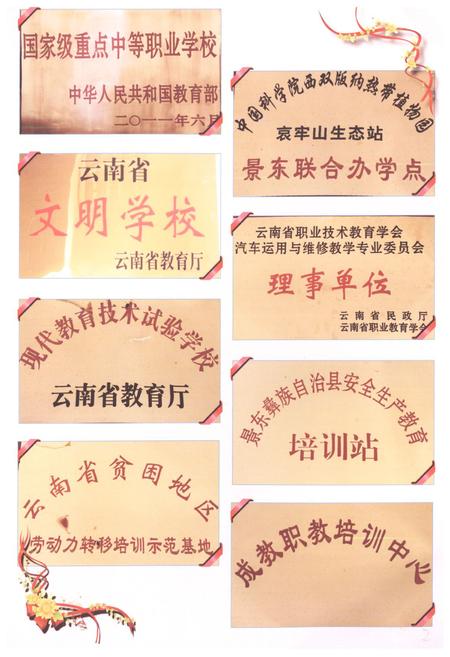 国家级重点中等职业学校
中华人民共和国教育部
二〇一一年六月
云南省
文明学校
云南省教育厅
现代教育技术试验学校
云南省教育厅
云南省贫困地区
劳动力转移培训示范基地
中国科学院西双版纳热带植物园
哀牢山生态站
景东联合办学点
云南省职业技术教育学会
汽车运用与维修教学专业委员会
理事单位
云南省民政厅
云南省职业教育学会
景东彝族自治县安全生产教育
培训站
成教职教培训中心
2